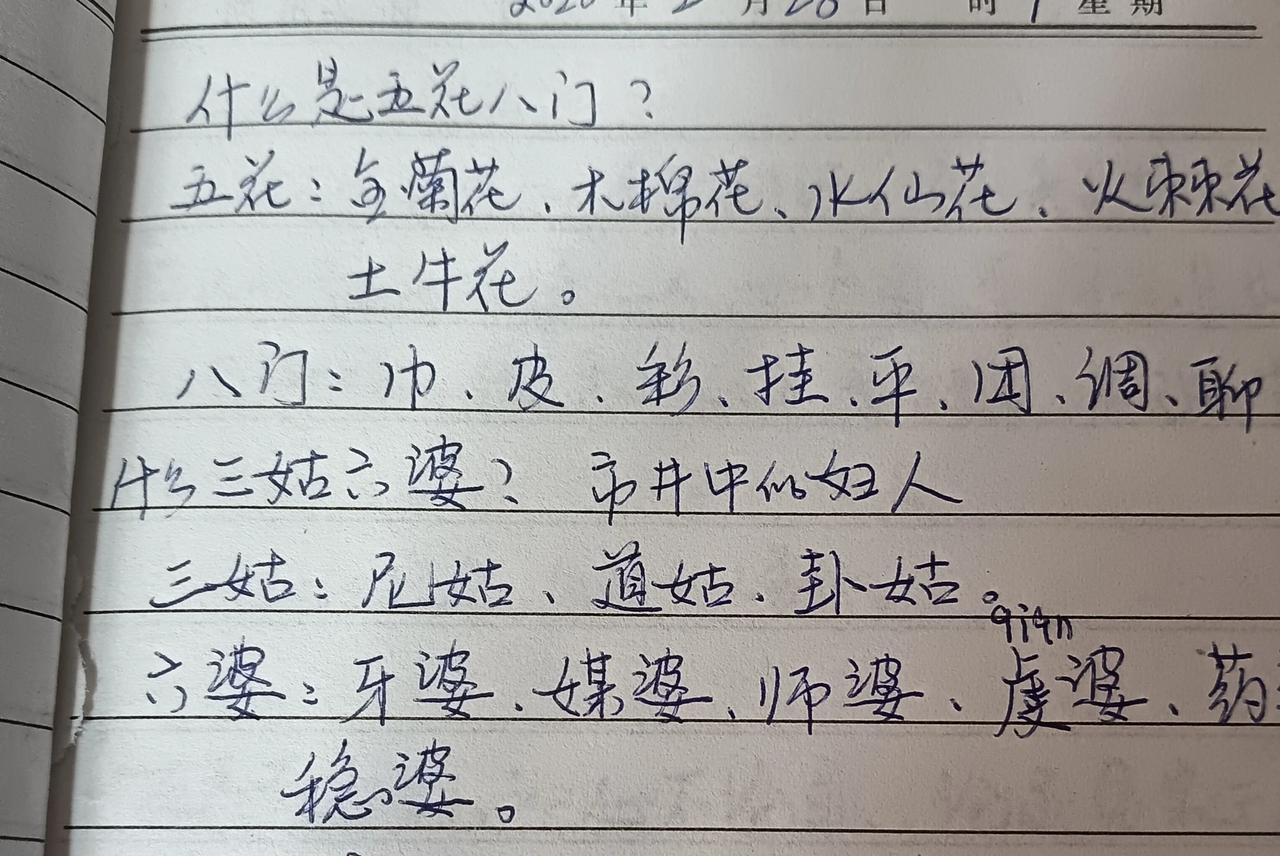 年 月28日 时 星期
什么是五花八门?
五花:金菊花、木棉花、水仙花、火棘花
土牛花。
八门:巾、皮、彩、挂、平、团、调、聊
什么三姑六婆? 市井中的妇人
三姑:尼姑、道姑、卦姑。
qian
六婆:牙婆、媒婆、师婆、虔婆、药
稳婆。